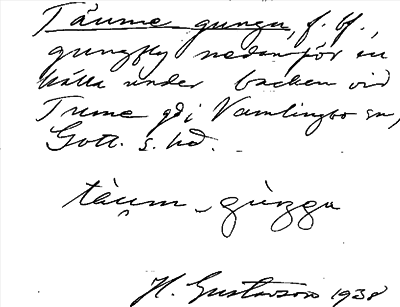 Täume gunga, f. bf.,
gungfly nedanför en
källa under backen vid
Tume gd i Vamlingbo sn,
Gotl. s. hd.
tàum-gùngga
H. Gustavson 1938